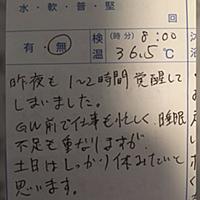 水・軟・普・堅
回
有・無
検温 (時分) 8:00
36.5℃
昨夜も1~2時間覚醒して
しまいました。
GW前で仕事も忙しく、睡眠
不足も重なりますが、
土日はしっかり休みたいと
思います。